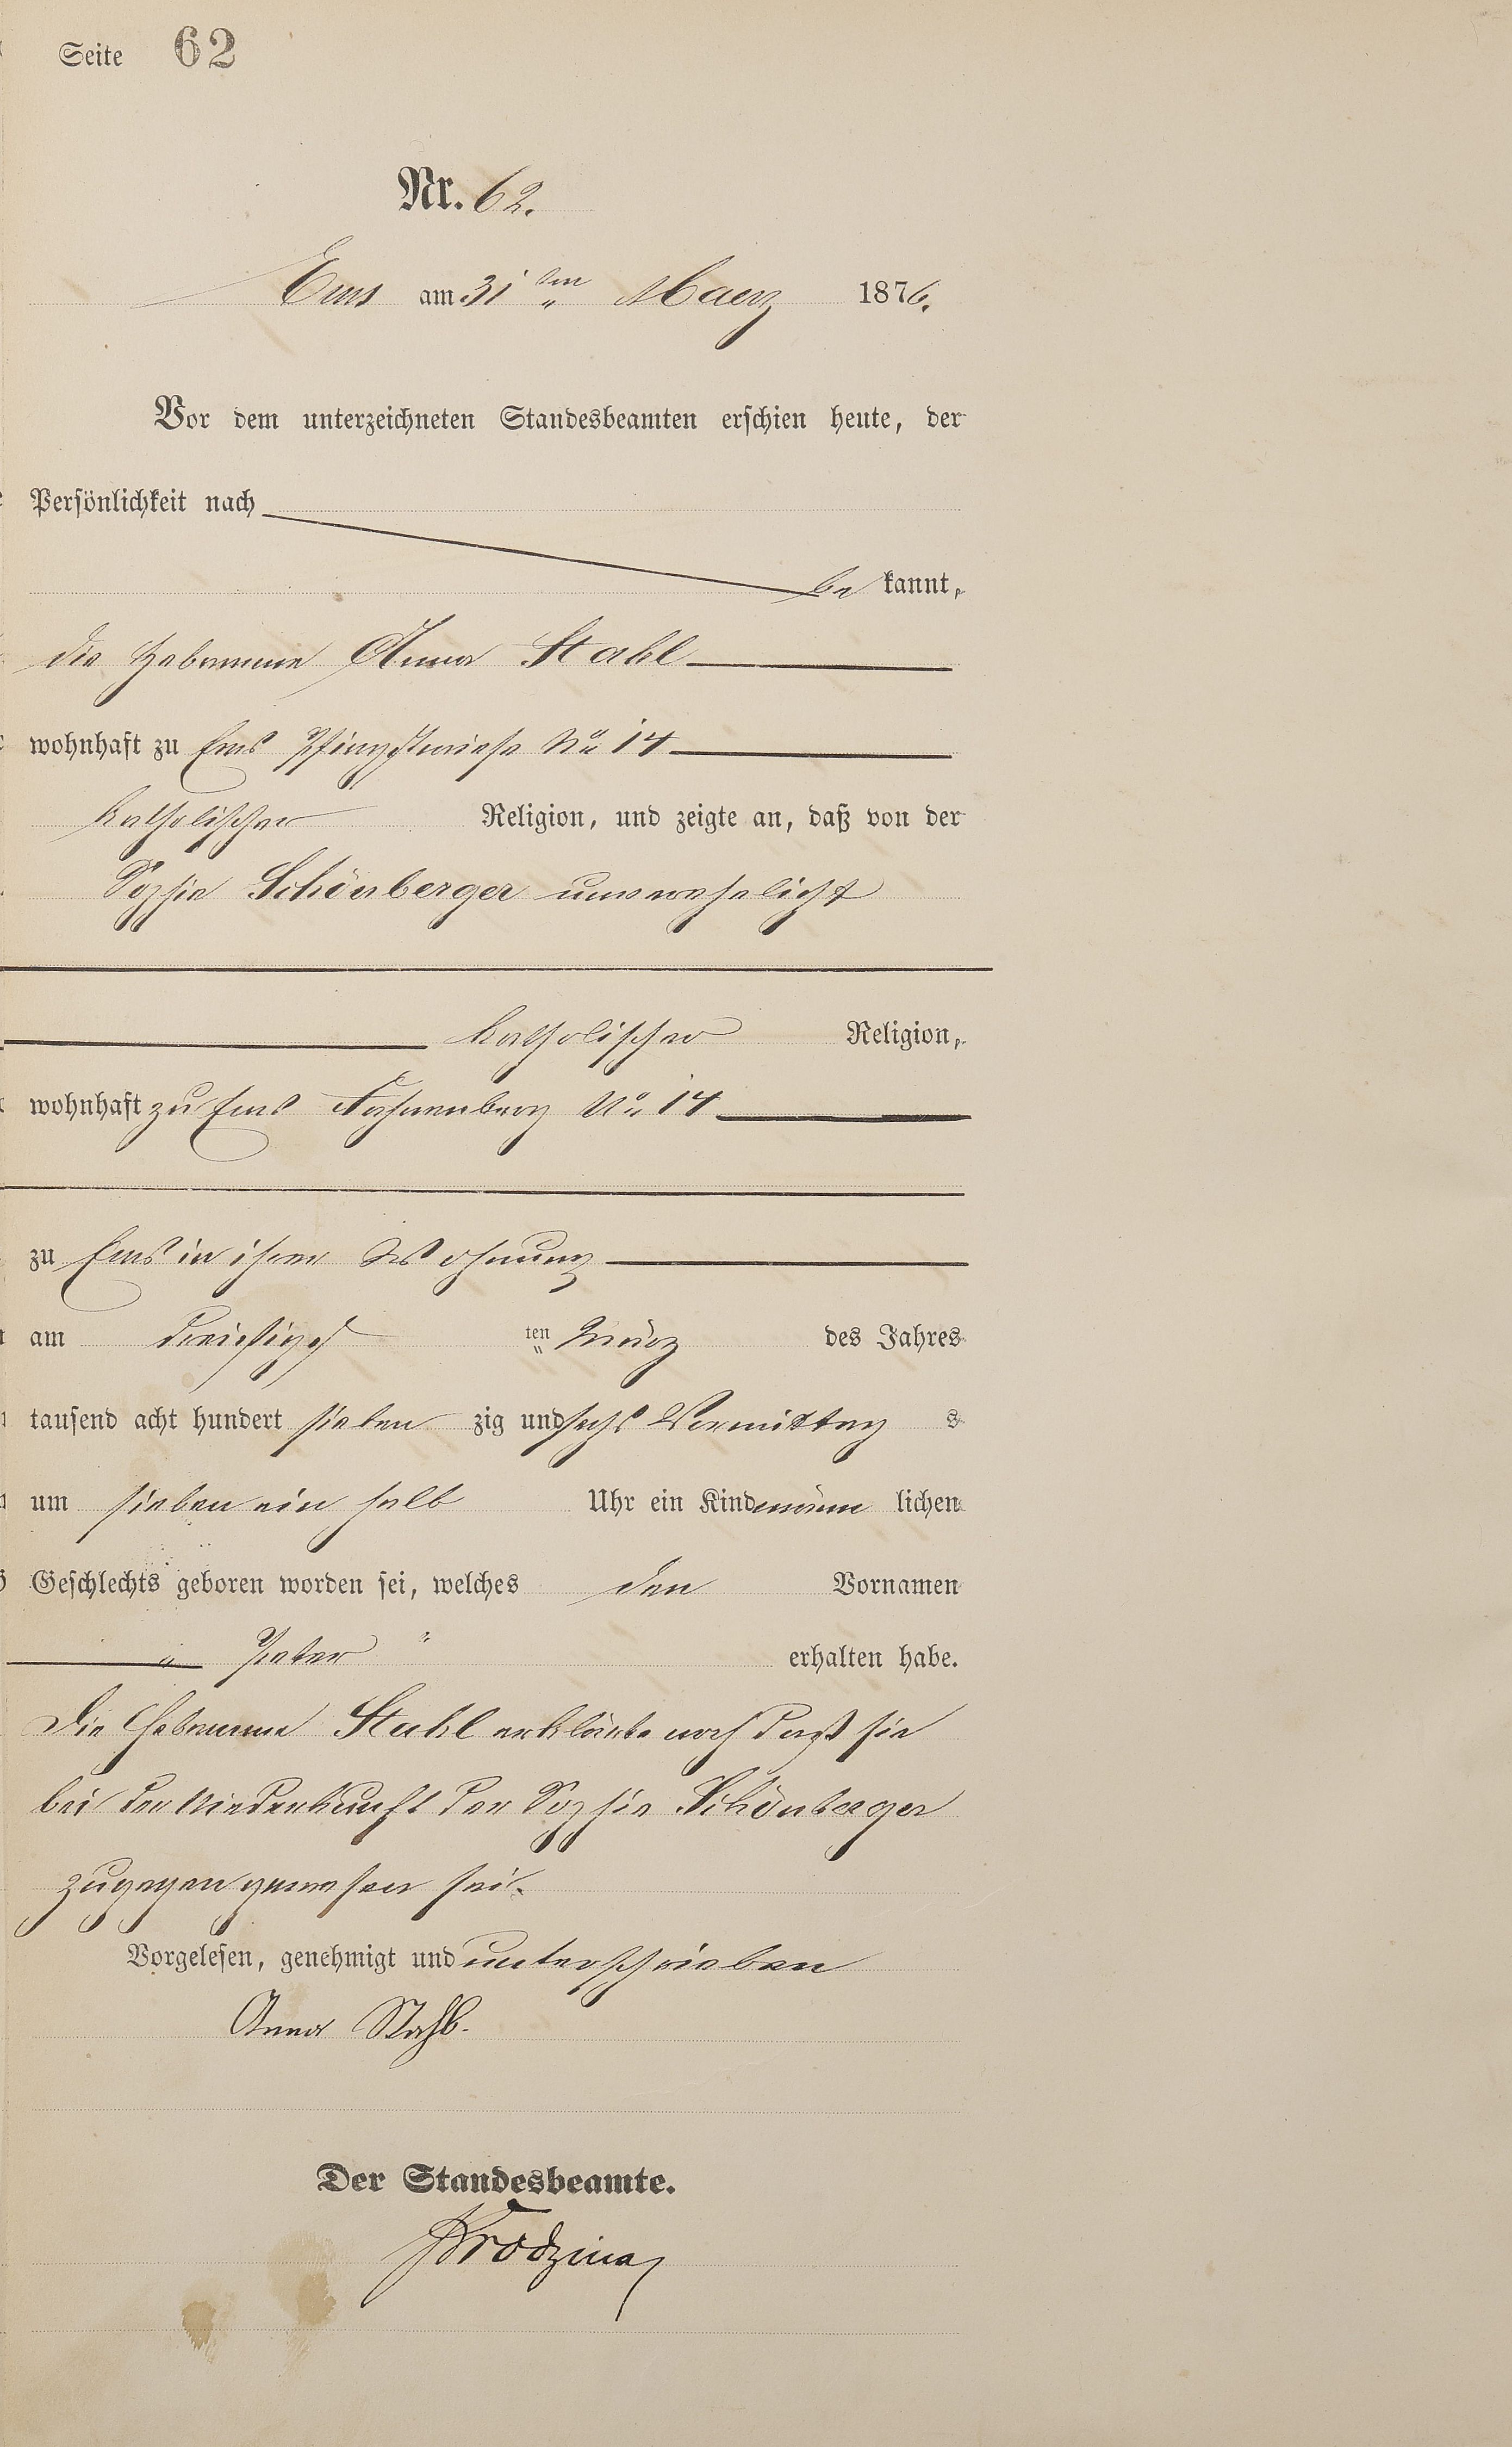 Seite 62
Nr. 62.
Ems am 31 ten Maerz 1876.
Vor dem unterzeichneten Standesbeamten erschien heute, der
Persönlichkeit nach
be kannt,
die Hebamme Anna Stahl
wohnhaft zu Ems Pfingstwiese No 14
katholischer Religion, und zeigte an, daß von der
Sophie Schönberger unverehelicht
katholischer Religion,
wohnhaft zu Ems No 14
zu Ems in ihrer Wohnung
am dreißigst ten März des Jahres
tausend acht hundert sieben zig und sechs Vormittag s
um sieben ein halb Uhr ein Kind männ lichen
Geschlechts geboren worden sei, welches den Vornamen
„ Peter " erhalten habe.
Die Hebamme Stahl erklärte noch daß sie
bei der Niederkunft der Sophie Schönberger
zugegen gewesen sei.
Vorgelesen, genehmigt und unterschrieben
Anna Stahl.
Der Standesbeamte.